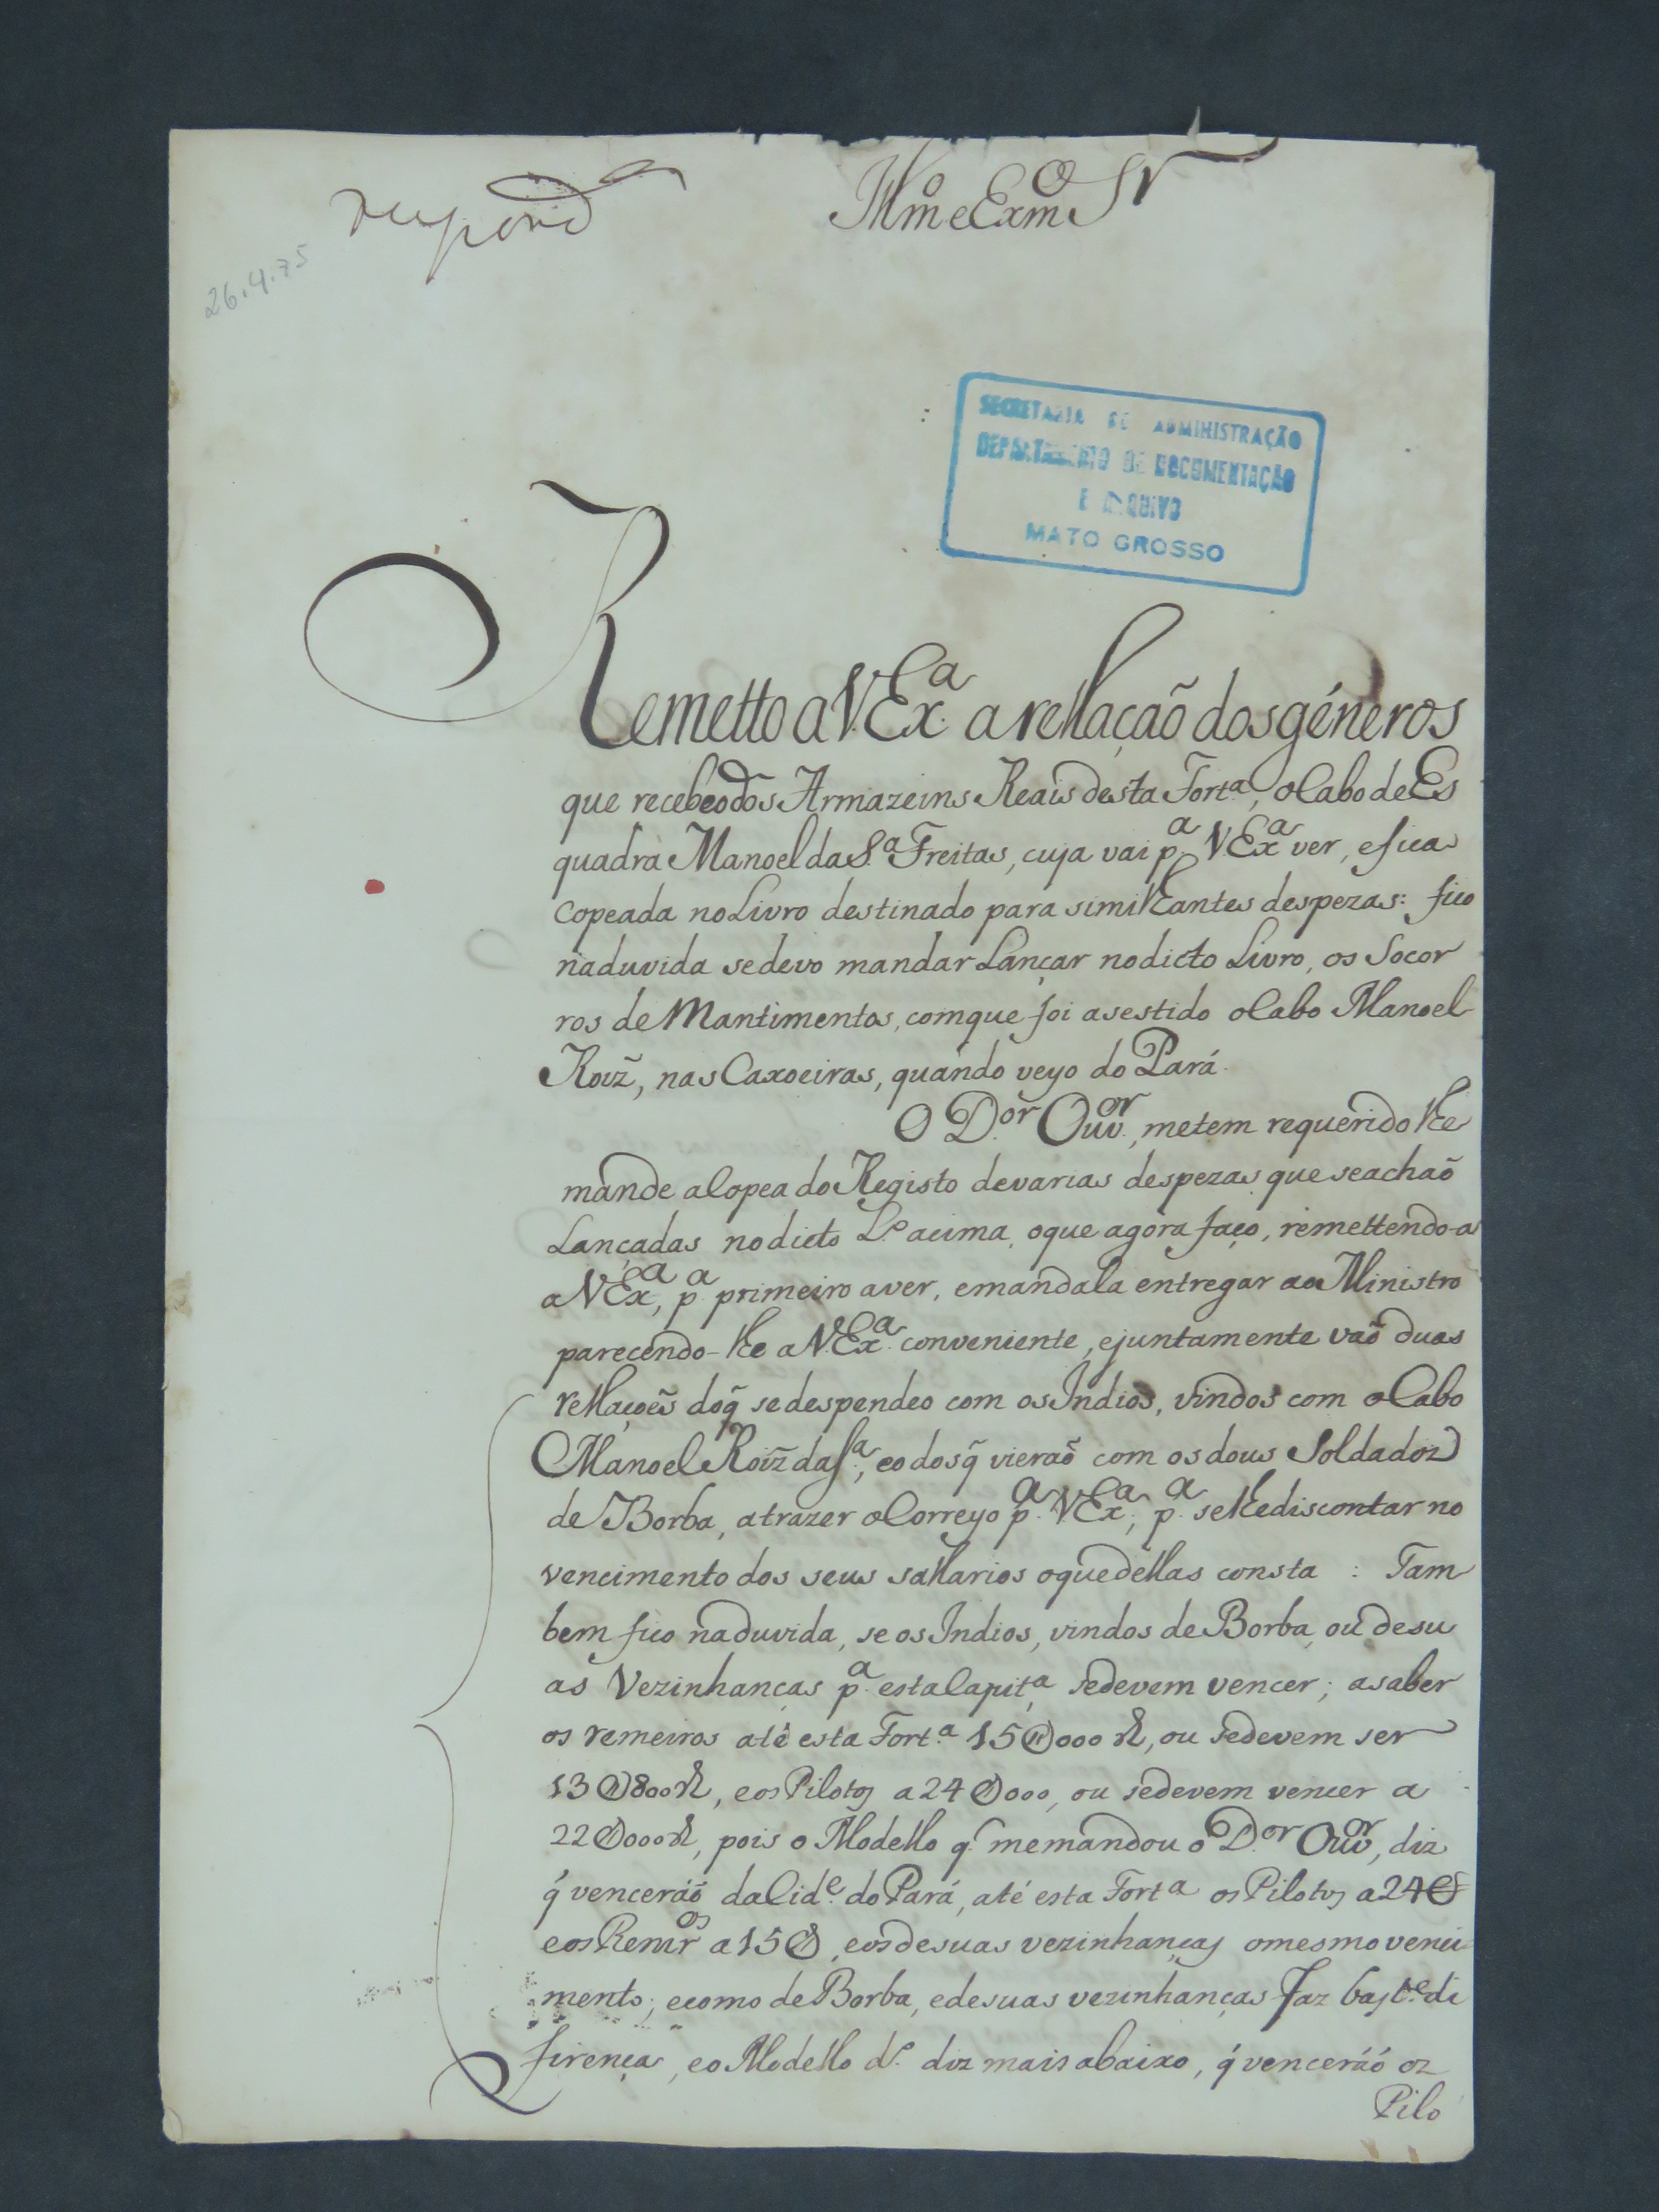 Illmo e Exmo Sr
respond
26.4.75
SECRETARIA DE ADMINISTRAÇÃO
DEPARTAMENTO DE DOCUMENTAÇÃO
E ARQUIVO
MATO GROSSO
Remetto a V. Exa. a rellação dos géneros
que recebeo dos Armazeins Reais desta Forta., o Cabo de Es
quadra Manoel da Sa. Freitas, cuja vai pa. V. Exa ver, e fica
copeada no Livro destinado para similhantes despezas: fico
na duvida se devo mandar Lançar no dicto Livro, os Socor
ros de Mantimentos, com que foi asestido o Cabo Manoel
Roiz̃, nas Caxoeiras, quando veyo do Pará.
O D.or Ouv.or, me tem requerido lhe
mande a Copea do Registo de varias despezas que se achaõ
Lançadas no dicto L.o acima, o que agora faço, remettendo-a
a V Exa, pa. primeiro a ver, e mandala entregar ao Ministro
parecendo-lhe a V. Exa. conveniente, e juntamente vaõ duas
rellaçoẽs do q̃ se despendeo com os Indios, vindos com o Cabo
Manoel Roiz̃ da Sa., e o dos q̃ vieraõ com os dous Soldados
de Borba, a trazer o Correyo pa. V Exa., pa. se lhe discontar no
vencimento dos seus sallarios o que dellas consta: Tam
bem fico na duvida, se os Indios, vindos de Borba, ou de su
as Vezinhanças pa. esta Capita., se devem vencer; a saber
os remeiros até esta Forta. 15$000 rs, ou se devem ser
13$800 rs, e os Pilotos a 24$000, ou se devem vencer a
22$000 rs, pois o Modello q. me mandou o D.or Ouv.or, diz
q̃ venceráõ da Cide. do Pará, até esta Forta os Pilotos a 24$
e os Remros a 15$, e os de suas vezinhanças o mesmo venci
mento; e como de Borba, e de suas vezinhanças faz baste. di
firença, e o Modello do. diz mais abaixo, q̃ venceráó os
Pilo